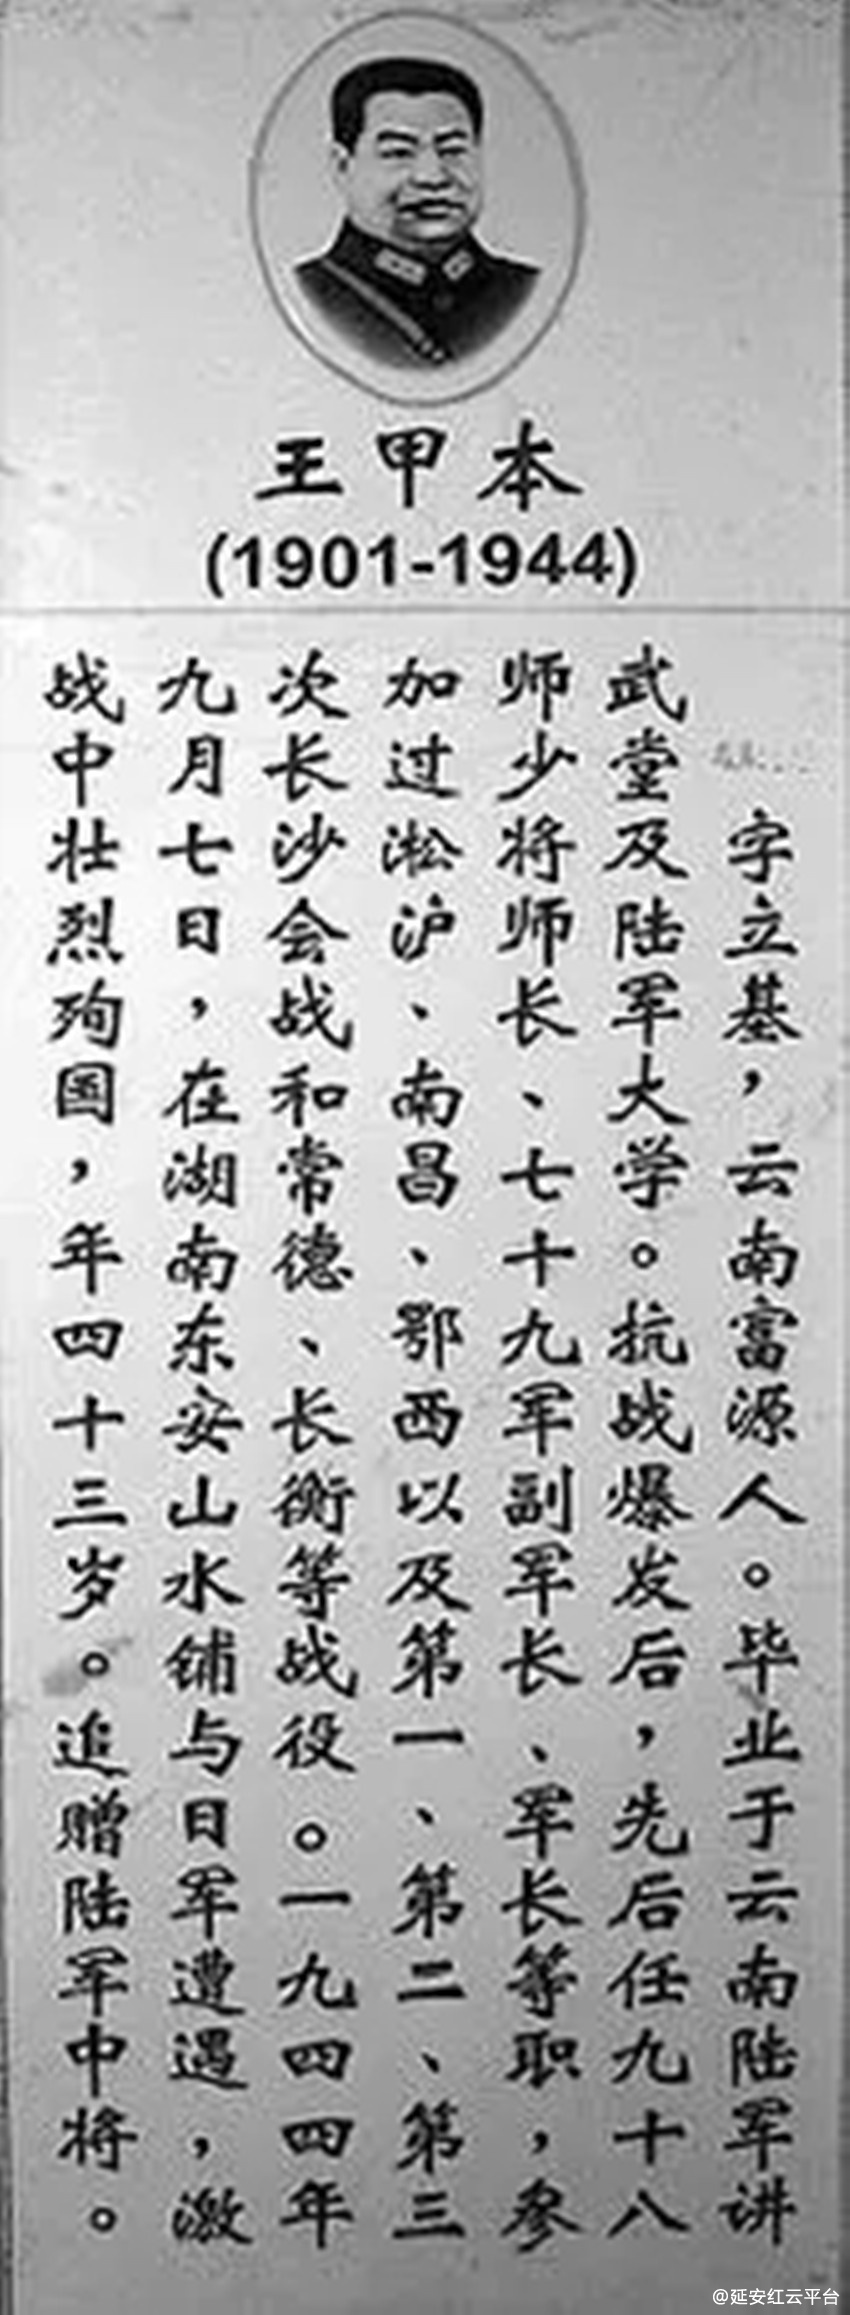 王甲本
(1901-1944)
字立基，云南富源人。毕业于云南陆军讲
武堂及陆军大学。抗战爆发后，先后任九十八
师少将师长、七十九军副军长、军长等职，参
加过淞沪、南昌、鄂西以及第一、第二、第三
次长沙会战和常德、长衡等战役。一九四四年
九月七日，在湖南东安山水铺与日军遭遇，激
战中壮烈殉国，年四十三岁。追赠陆军中将。
@延安红云平台